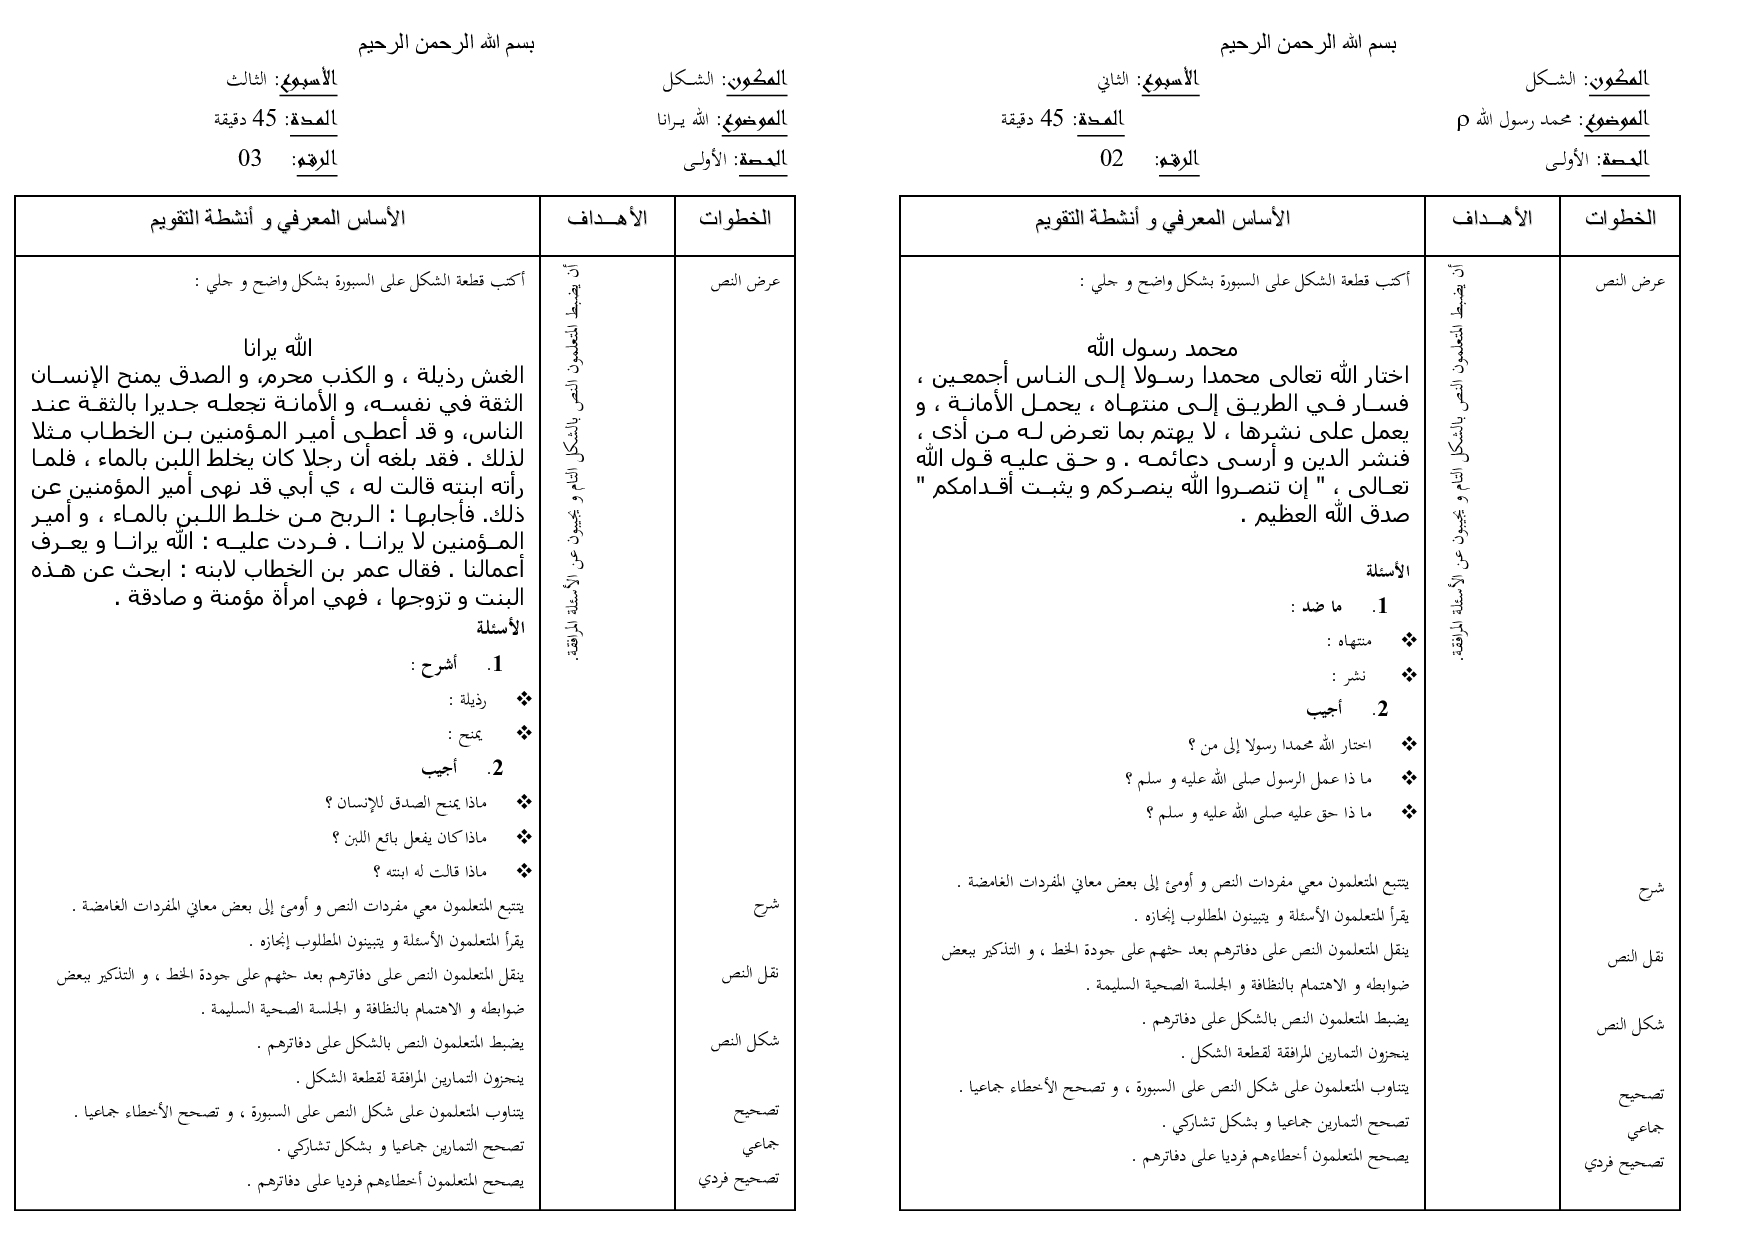 بسم الله الرحمن الرحيم
المكون: الشـكل
الأسبوع: الثاني
الموضوع: محمد رسول الله ρ
المدة: 45 دقيقة
الحصة: الأولـى
الرقم: 02
الخطوات
الأهـــداف
الأساس المعرفي و أنشطة التقويم
عرض النص
أن يضبط المتعلمون النص بالشكل التام و يجيبون عن الأسئلة المرافقة.
أكتب قطعة الشكل على السبورة بشكل واضح و جلي :
محمد رسول الله
اختار الله تعالى محمدا رسـولا إلـى النـاس أجمعـين ،
فسـار فـي الطريـق إلـى منتهـاه ، يحمـل الأمانـة ، و
يعمل على نشرها ، لا يهتم بما تعـرض لـه مـن أذى ،
فنشر الدين و أرسـى دعائمـه . و حـق عليـه قـول الله
تعـالى ، " إن تنصـروا الله ينصـركم و يثبـت أقـدامكم "
صدق الله العظيم .
الأسئلة
1. ما ضد :
❖ منتهاه :
❖ نشر :
2. أجيب
❖ اختار الله محمدا رسولا إلى من ؟
❖ ما ذا عمل الرسول صلى الله عليه و سلم ؟
❖ ما ذا حق عليه صلى الله عليه و سلم ؟
شرح
يتتبع المتعلمون معي مفردات النص و أومئ إلى بعض معاني المفردات الغامضة .
يقرأ المتعلمون الأسئلة و يتبينون المطلوب إنجازه .
نقل النص
ينقل المتعلمون النص على دفاترهم بعد حثهم على جودة الخط ، و التذكير ببعض
ضوابطه و الاهتمام بالنظافة و الجلسة الصحية السليمة .
شكل النص
يضبط المتعلمون النص بالشكل على دفاترهم .
ينجزون التمارين المرافقة لقطعة الشكل .
تصحيح
يتناوب المتعلمون على شكل النص على السبورة ، و تصحح الأخطاء جماعيا .
جماعي
تصحح التمارين جماعيا و بشكل تشاركي .
تصحيح فردي
يصحح المتعلمون أخطاءهم فرديا على دفاترهم .
بسم الله الرحمن الرحيم
المكون: الشـكل
الأسبوع: الثالث
الموضوع: الله يـرانا
المدة: 45 دقيقة
الحصة: الأولـى
الرقم: 03
الخطوات
الأهـــداف
الأساس المعرفي و أنشطة التقويم
عرض النص
أن يضبط المتعلمون النص بالشكل التام و يجيبون عن الأسئلة المرافقة.
أكتب قطعة الشكل على السبورة بشكل واضح و جلي :
الله يرانا
الغش رذيلة ، و الكذب محرم، و الصدق يمنح الإنسـان
الثقة في نفسـه، و الأمانـة تجعلـه جـديرا بالثقـة عنـد
الناس، و قد أعطـى أميـر المـؤمنين بـن الخطـاب مـثلا
لذلك . فقد بلغه أن رجلا كان يخلط اللبن بالماء ، فلمـا
رأته ابنته قالت له ، ي أبي قد نهى أمير المؤمنين عن
ذلك. فأجابهـا : الـربح مـن خلـط اللـبن بالمـاء ، و أميـر
المـؤمنين لا يرانـا . فـردت عليـه : الله يرانـا و يعـرف
أعمالنا . فقال عمر بن الخطاب لابنه : ابحث عن هـذه
البنت و تزوجها ، فهي امرأة مؤمنة و صادقة .
الأسئلة
1. أشرح :
❖ رذيلة :
❖ يمنح :
2. أجيب
❖ ماذا يمنح الصدق للإنسان ؟
❖ ماذا كان يفعل بائع اللبن ؟
❖ ماذا قالت له ابنته ؟
شرح
يتتبع المتعلمون معي مفردات النص و أومئ إلى بعض معاني المفردات الغامضة .
يقرأ المتعلمون الأسئلة و يتبينون المطلوب إنجازه .
نقل النص
ينقل المتعلمون النص على دفاترهم بعد حثهم على جودة الخط ، و التذكير ببعض
ضوابطه و الاهتمام بالنظافة و الجلسة الصحية السليمة .
شكل النص
يضبط المتعلمون النص بالشكل على دفاترهم .
ينجزون التمارين المرافقة لقطعة الشكل .
تصحيح
يتناوب المتعلمون على شكل النص على السبورة ، و تصحح الأخطاء جماعيا .
جماعي
تصحح التمارين جماعيا و بشكل تشاركي .
تصحيح فردي
يصحح المتعلمون أخطاءهم فرديا على دفاترهم .